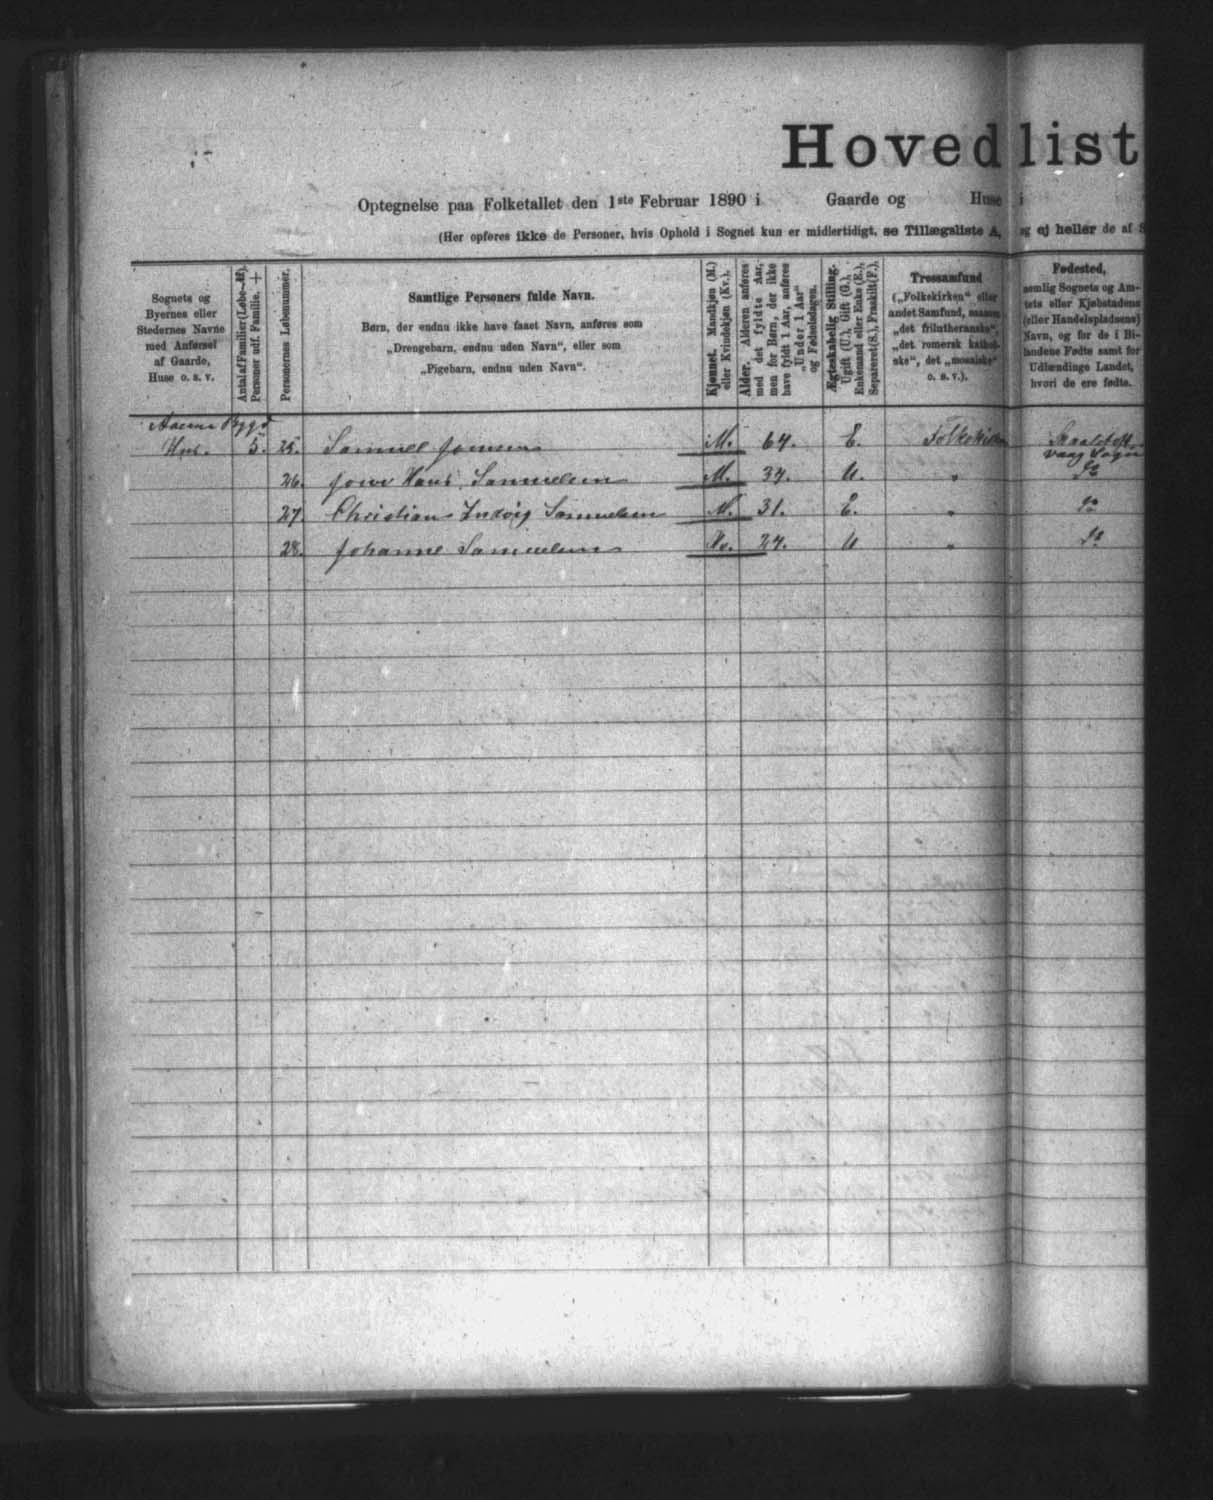 Hovedlist
Optegnelse paa Folketallet den 1ste Februar 1890 i Gaarde og Huse i
(Her opføres ikke de Personer, hvis Ophold i Sognet kun er midlertidigt, se Tillægsliste A, og ej heller de af S
Sognets og
Byernes eller
Stedernes Navne
med Anførsel
af Gaarde,
Huse o. s. v.
Antal af Familier (Løbe-№).
Personer udf. Familie. +
Personernes Løbenummer.
Samtlige Personers fulde Navn.
Børn, der endnu ikke have faaet Navn, anføres som
„Drengebarn, endnu uden Navn", eller som
„Pigebarn, endnu uden Navn".
Kjønnet. Mandkjøn (M.)
eller Kvindekjøn (Kv.).
Alder. Alderen anføres
med det fyldte Aar,
men for Børn, der ikke
have fyldt 1 Aar, anføres
„Under 1 Aar"
og Fødselsdagen.
Ægteskabelig Stilling.
Ugift (U.), Gift (G.),
Enkemand eller Enke (E.),
Separeret (S.), Fraskilt (F.).
Trossamfund
(„Folkekirken" eller
andet Samfund, saasom
„det frilutheranske",
„det romersk katholske",
det „mosaiske"
o. s. v.).
Fødested,
nemlig Sognets og Amtets
eller Kjøbstadens
(eller Handelspladsens)
Navn, og for de i Bilandene
Fødte samt for
Udlændinge Landet,
hvori de ere fødte.
Bygd
Hus. 5. 25. Samuel Joensen M. 64. E. Folkekirken
vaag Sogn
26. Hans Samuelsen M. 34. U. " do
27. Christian Ludvig Samuelsen M. 31. E. " do
28. Johanne Samuelsen Kv. 24. U " do